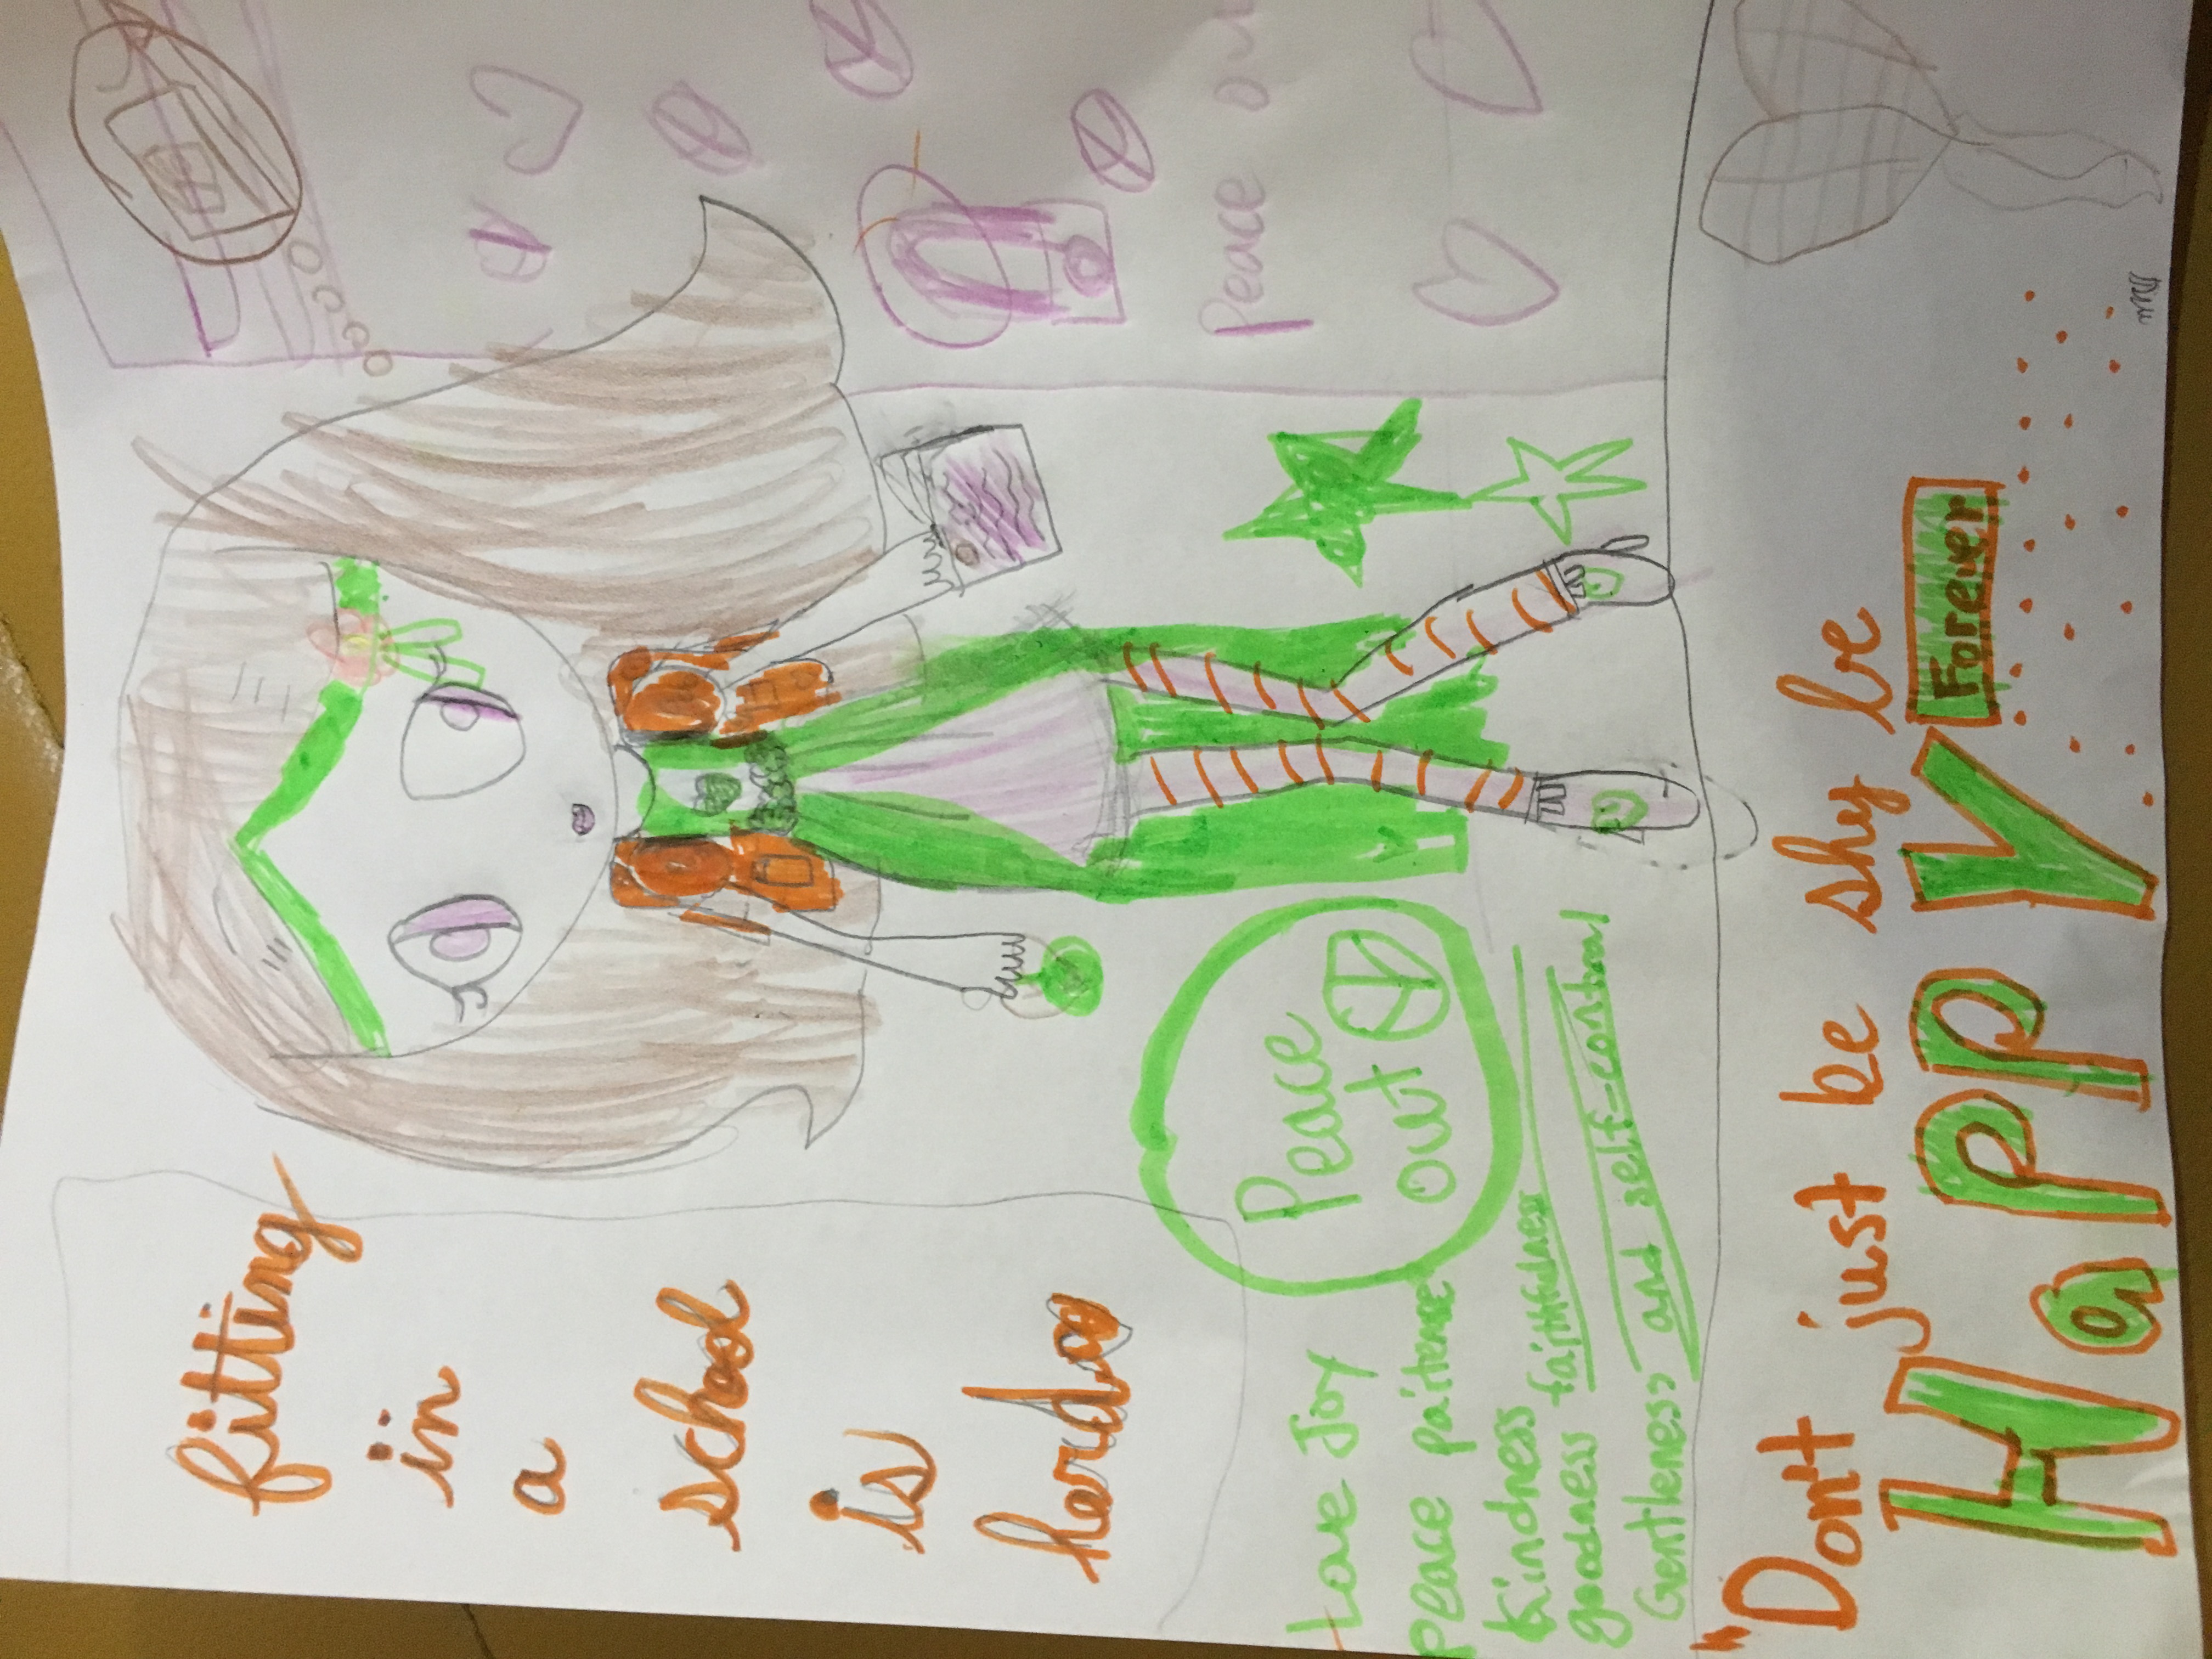 fitting
in
a
school
is
hard
Peace
out
Love Joy
Peace paitense
Kindness
goodness faithfulness
Gentleness and self-control
Peace ou
"Don't just be shy be
HaPPY Forever